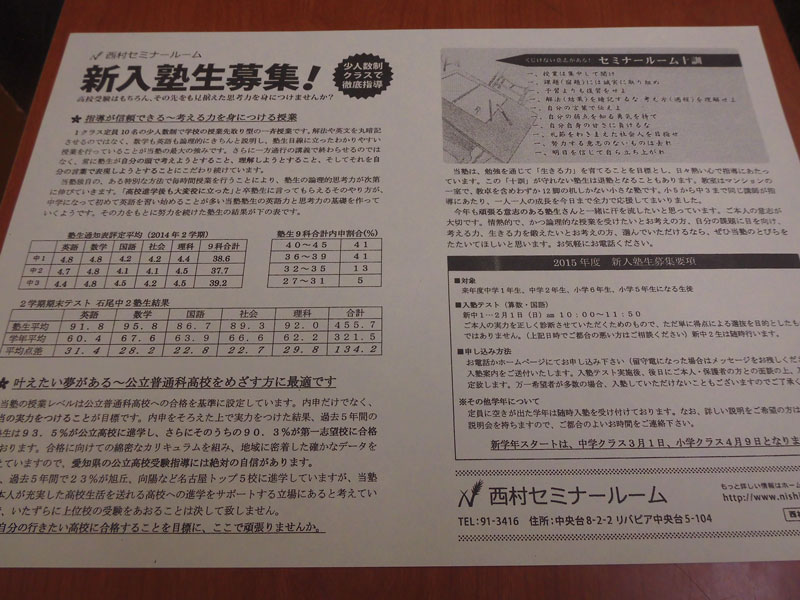 西村セミナールーム
新入塾生募集!
少人数制
クラスで
徹底指導
高校受験はもちろん、その先をも見据えた思考力を身につけませんか?
★ 指導が信頼できる～考える力を身につける授業
1クラス定員10名の少人数制で学校の授業先取り型の一斉授業です。解法や英文を丸暗記
させるのではなく、数学も英語も論理的にきちんと説明し、塾生目線に立ったわかりやすい
授業を行っていることが当塾の最大の強みです。さらに一方通行の講義で終わらせるのでは
なく、常に塾生が自分の頭で考えようとすること、理解しようとすること、そしてそれを自
分の言葉で表現しようとすることにこだわり続けています。
当塾独自の、ある特別な方法で毎時間授業を行うことにより、塾生の論理的思考力が次第
に伸びていきます。「高校進学後も大変役に立った」と卒塾生に言ってもらえるそのやり方が、
中学になって初めて英語を習い始めることが多い当塾塾生の英語力と思考力の基礎を作って
いくようです。その力をもとに努力を続けた塾生の結果が下の表です。
塾生通知表評定平均(2014年2学期)
英語 数学 国語 社会 理科 9科合計
中1 4.8 4.8 4.2 4.4 4.4 38.6
中2 4.7 4.8 4.1 4.1 4.5 37.7
中3 4.4 4.8 4.5 4.2 4.5 39.2
塾生9科合計内申割合(%)
40～45 41
36～39 41
32～35 13
27～31 5
2学期期末テスト 石尾中2塾生結果
英語 数学 国語 社会 理科 合計
塾生平均 91.8 95.8 86.7 89.3 92.0 455.7
学年平均 60.4 67.6 63.9 66.6 62.2 321.5
平均点差 31.4 28.2 22.8 22.7 29.8 134.2
★ 叶えたい夢がある～公立普通科高校をめざす方に最適です
当塾の授業レベルは公立普通科高校への合格を基準に設定しています。内申だけでなく、
当の実力をつけることが目標です。内申をそろえた上で実力をつけた結果、過去5年間の
塾生は93.5%が公立高校に進学し、さらにそのうちの90.3%が第一志望校に合格
おります。合格に向けての綿密なカリキュラムを組み、地域に密着した確かなデータを
えていますので、愛知県の公立高校受験指導には絶対の自信があります。
、過去5年間で23%が旭丘、向陽など名古屋トップ5校に進学していますが、当塾
本人が充実した高校生活を送れる高校への進学をサポートする立場にあると考えてい
、いたずらに上位校の受験をあおることは決して致しません。
自分の行きたい高校に合格することを目標に、ここで頑張りませんか。
くじけない意志がある! セミナールーム十訓
一、授業は集中して聞け
一、課題(宿題)には誠実に取り組め
一、予習よりも復習をせよ
一、解法(結果)を暗記するな 考え方(過程)を理解せよ
一、自分の言葉で伝えよ
一、自分の弱点を知る勇気を持て
一、自分自身の甘さに負けるな
一、礼節をわきまえた社会人を目指せ
一、努力する意志のないものは去れ
一、明日を信じて自ら立ち上がれ
当塾は、勉強を通じて「生きる力」を育てることを目標とし、日々熱い心で指導にあたっ
ています。この「十訓」が守れない塾生は退塾となることもあります。教室はマンションの
一室で、教卓を含めわずか12脚の机しかない小さな塾です。小5から中3まで同じ講師が指
導にあたり、一人一人の成長を今日まで全力で応援してまいりました。
今年も頑張る意志のある塾生さんと一緒に汗を流したいと思っています。ご本人の意志が
大切です。情熱的で、かつ論理的な授業を受けたいとお考えの方、自分の課題に目を向け、
考える力、生きる力を鍛えたいとお考えの方、選んでいただけるなら、ぜひ当塾のとびらを
たたいてほしいと思います。お気軽にお電話ください。
2015年度 新入塾生募集要項
■対象
来年度中学1年生、中学2年生、小学6年生、小学5年生になる生徒
■入塾テスト(算数・国語)
新中1…2月1日(日) am 10:00～11:50
ご本人の実力を正しく診断させていただくためのもので、ただ単に得点による選抜を目的としたも
ではありません。(上記日時でご都合の悪い方はご相談ください)新中2生は随時行います。
■申し込み方法
お電話かホームページにてお申し込み下さい(留守電になった場合はメッセージをお残しくださ
入塾案内をご送付いたします。入塾テスト実施後、後日にご本人・保護者の方との面談の上、入
定致します。万一希望者が多数の場合、入塾していただけないこともございますのでご了承
※その他学年について
定員に空きが出た学年は随時入塾を受け付けております。なお、詳しい説明をご希望の方は
説明会を持ちますので、ご都合のよいお時間をご連絡下さい。
新学年スタートは、中学クラス3月1日、小学クラス4月9日となりま
西村セミナールーム
もっと詳しい情報はホーム
http://www.nishi
TEL:91-3416 住所:中央台8-2-2リバピア中央台5-104
西村